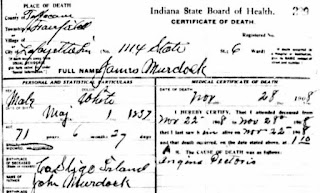 PLACE OF DEATH
Indiana State Board of Health.
County Tippecanoe
CERTIFICATE OF DEATH
Township Fairfield
Registered No.
City Lafayette Ind No. 1114 State St. 6 Ward
FULL NAME James Murdock
PERSONAL AND STATISTICAL PARTICULARS
MEDICAL CERTIFICATE OF DEATH
Male White
Nov 28 1908
May 1 1837
I HEREBY CERTIFY, That I attended deceased from
Nov 22 1908 to Nov 28 1908
71 6 27
that I last saw h alive on Nov 22 1908
and that death occurred, on the date stated above, at 1.10
M. The CAUSE OF DEATH was as follows:
Co Sligo Ireland
Angina Pectoris
John Murdock